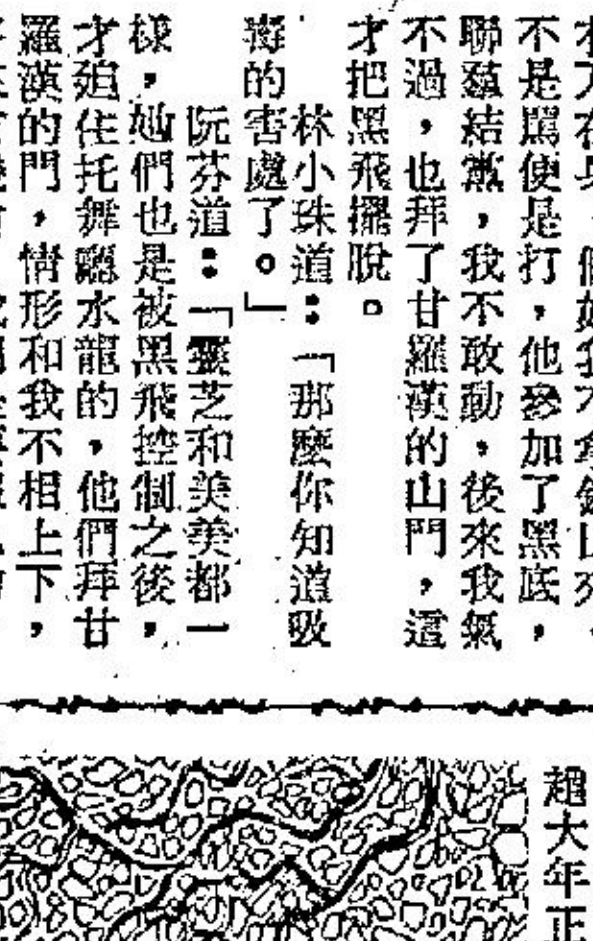 不是罵便是打，他參加了黑底，
聯羣結黨，我不敢動，後來我氣
不過，也拜了甘羅漢的山門，這
才把黑飛擺脫。
林小珠道：「那麼你知道吸
毒的害處了。」
阮芬道：「靈芝和美美都一
樣，她們也是被黑飛控制之後，
才追住托舞龍水龍的，他們拜甘
羅漢的門，情形和我不相上下，
趙大年正